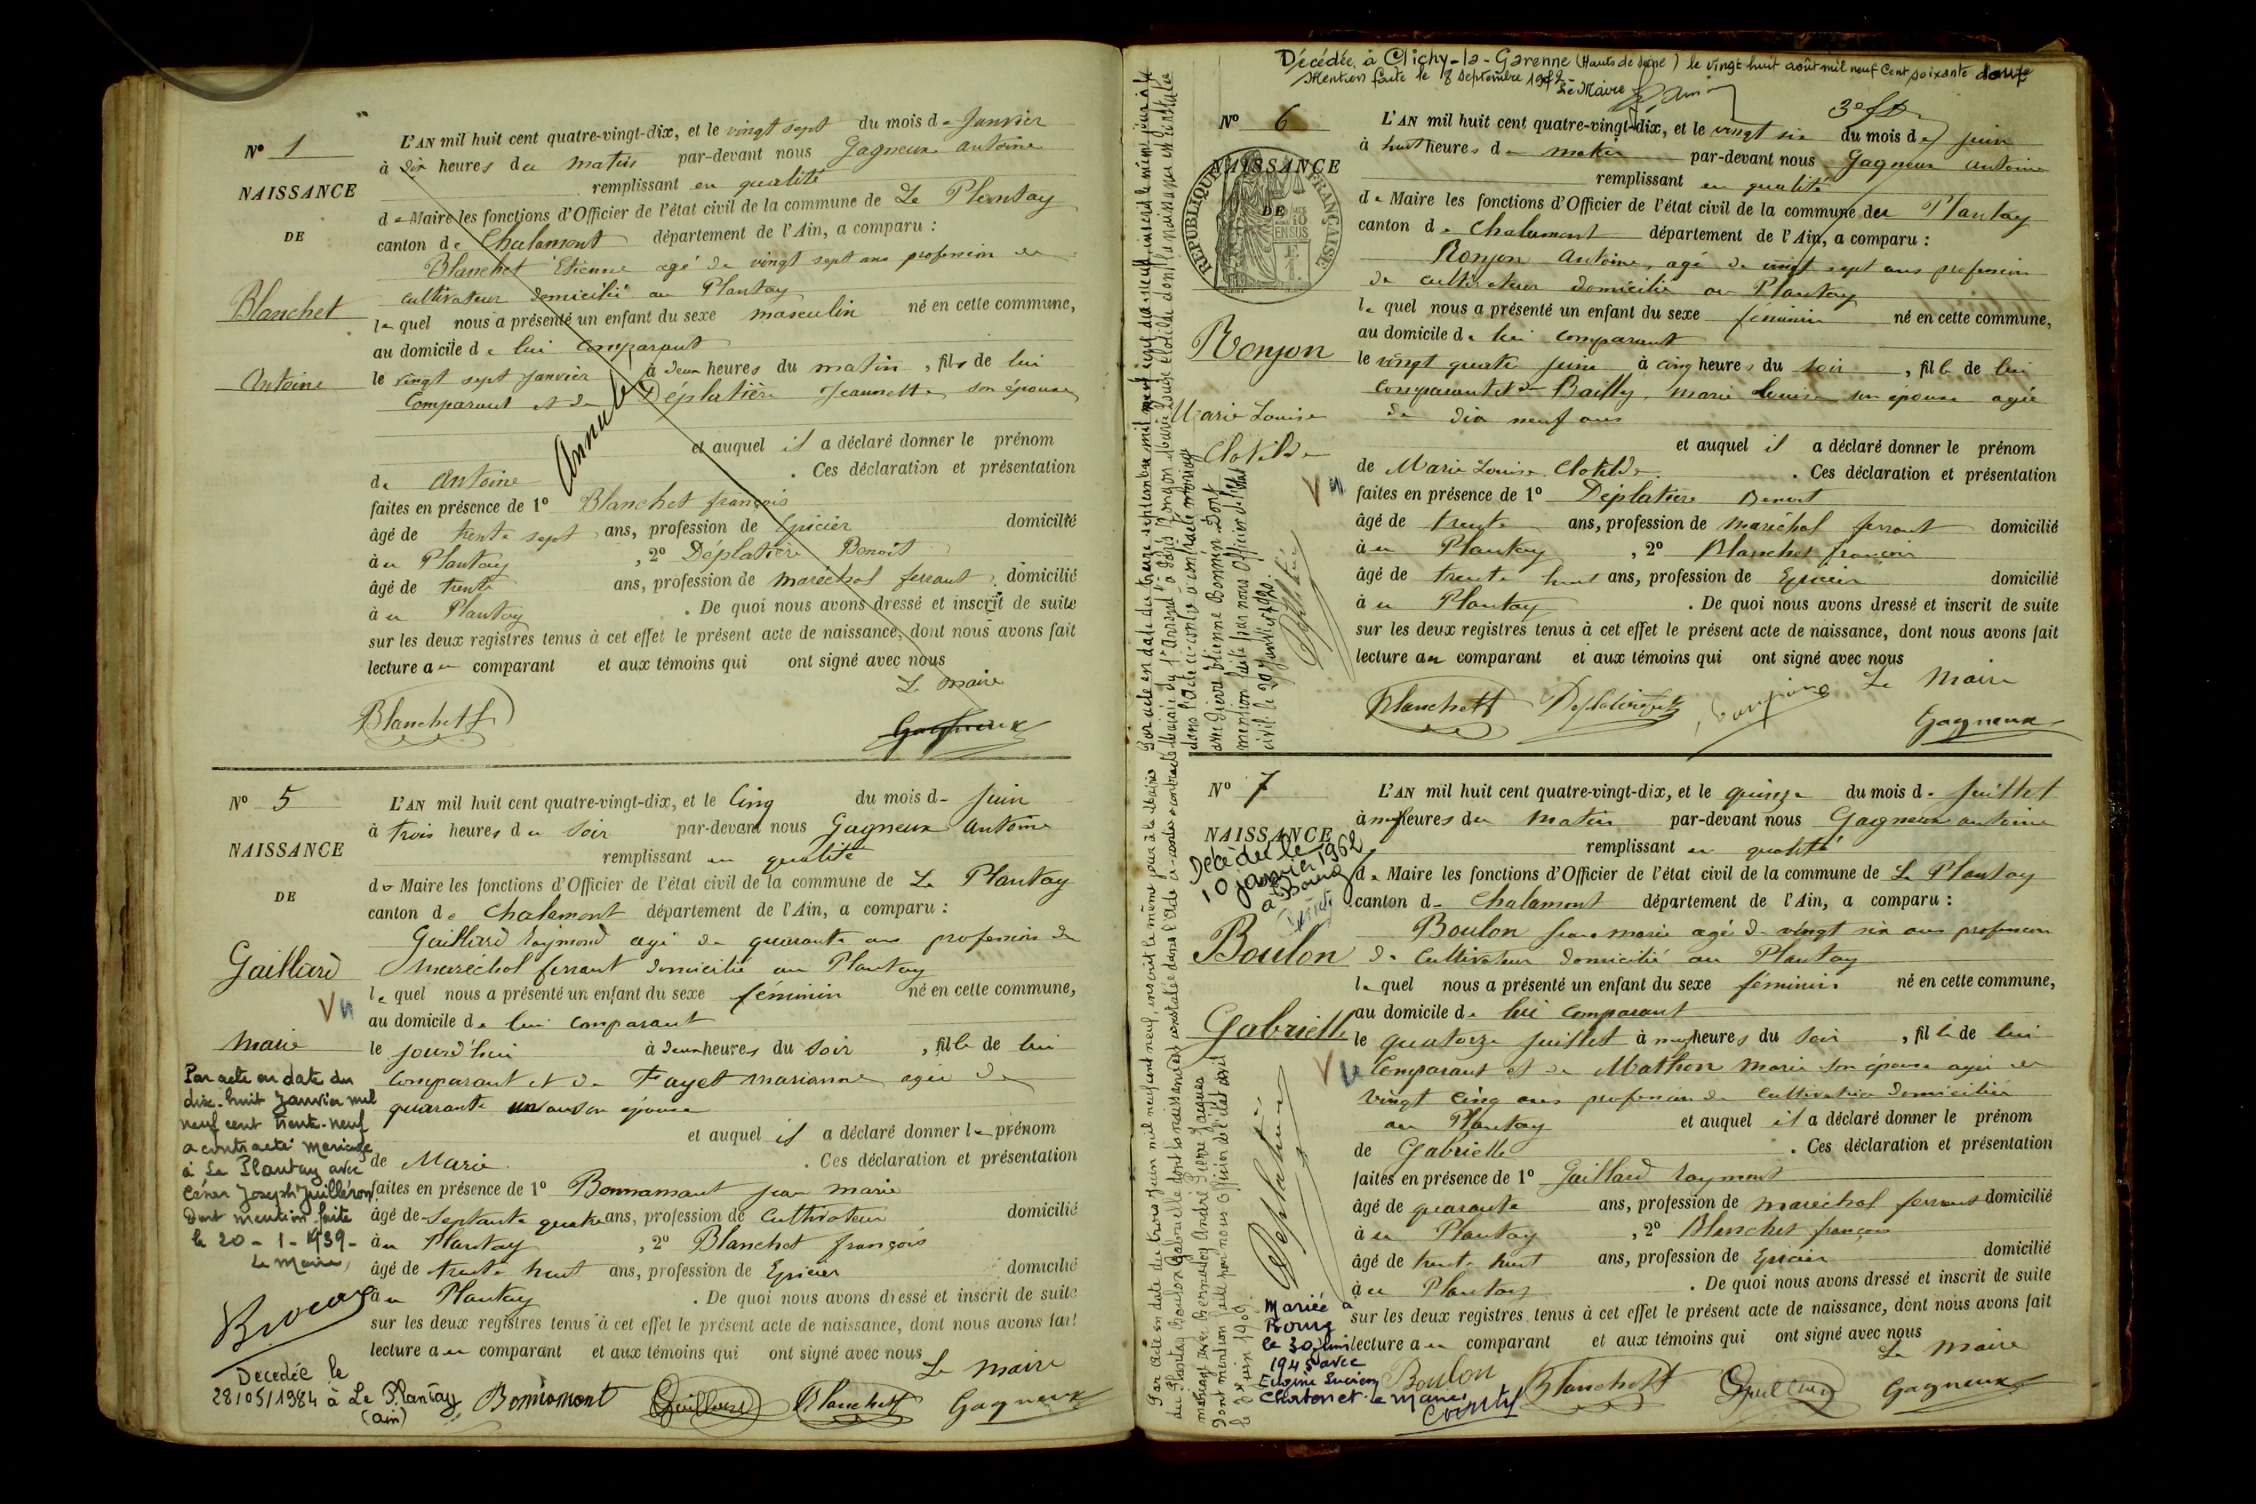 N° 1
NAISSANCE
DE
Blanchet
Antoine
L'AN mil huit cent quatre-vingt-dix, et le vingt sept du mois de Janvier
à dix heures du matin par-devant nous Gagneux Antoine
remplissant en qualité
de Maire les fonctions d'Officier de l'état civil de la commune de Le Plantay
canton de Chalamont département de l'Ain, a comparu :
Blanchet Etienne agé de vingt sept ans profession de
cultivateur domicilié au Plantay
lequel nous a présenté un enfant du sexe masculin né en cette commune,
au domicile de lui comparant
le vingt sept Janvier à deux heures du matin, fils de lui
Comparant et de Déplatière Jeannette son épouse
Annulé
et auquel il a déclaré donner le prénom
de Antoine . Ces déclaration et présentation
faites en présence de 1° Blanchet françois
âgé de trente sept ans, profession de Epicier domicilié
à u Plantay , 2° Déplatière Benoit
âgé de trente ans, profession de maréchal ferrant domicilié
à u Plantay . De quoi nous avons dressé et inscrit de suite
sur les deux registres tenus à cet effet le présent acte de naissance, dont nous avons fait
lecture au comparant et aux témoins qui ont signé avec nous
Le maire
Blanchet f
Gagneux
N° 5
NAISSANCE
DE
Gaillard
Vu
Marie
Par acte en date du
dix-huit Janvier mil
neuf cent trente-neuf
a contracté mariage
à Le Plantay avec
César Joseph Juilléron
Dont mention faite
le 20-1-1939-
Le Maire,
Décédée le
28/05/1984 à Le Plantay
(ain)
L'AN mil huit cent quatre-vingt-dix, et le Cinq du mois de Juin
à trois heures du soir par-devant nous Gagneux Antoine
remplissant en qualité
de Maire les fonctions d'Officier de l'état civil de la commune de Le Plantay
canton de Chalamont département de l'Ain, a comparu :
Gaillard Raymond agé de quarante ans profession de
Maréchal ferrant domicilié au Plantay
lequel nous a présenté un enfant du sexe féminin né en cette commune,
au domicile de lui comparant
le jourd'hui à deux heures du soir , fille de lui
Comparant et de Fayet marianne agée de
quarante un ans son épouse
et auquel il a déclaré donner le prénom
de Marie . Ces déclaration et présentation
faites en présence de 1° Bonnamont jean marie
âgé de septante quatre ans, profession de Cultivateur domicilié
à u Plantay , 2° Blanchet françois
âgé de trente huit ans, profession de Epicier domicilié
à u Plantay . De quoi nous avons dressé et inscrit de suite
sur les deux registres tenus à cet effet le présent acte de naissance, dont nous avons fait
lecture au comparant et aux témoins qui ont signé avec nous
Le maire
Bonnamont Gaillard Blanchet f Gagneux
Décédée à Clichy-la-Garenne (Hauts de Seine) le vingt huit août mil neuf cent soixante douze
Mention faite le 8 Septembre 1972 - Le Maire
N° 6
NAISSANCE
DE
RÉPUBLIQUE FRANÇAISE
Ronjon
Marie Louise
Clotilde
Vu
L'AN mil huit cent quatre-vingt-dix, et le vingt six du mois de juin
à huit heures du matin par-devant nous Gagneux Antoine
remplissant en qualité
de Maire les fonctions d'Officier de l'état civil de la commune de Plantay
canton de Chalamont département de l'Ain, a comparu :
Ronjon Antoine, agé de vingt sept ans profession
de cultivateur domicilié au Plantay
lequel nous a présenté un enfant du sexe féminin né en cette commune,
au domicile de lui comparant
le vingt quatre juin à cinq heures du soir , fille de lui
comparant et de Bailly, marie Louise son épouse agée
de dix neuf ans
et auquel il a déclaré donner le prénom
de Marie Louise Clotilde . Ces déclaration et présentation
faites en présence de 1° Déplatière Benoit
âgé de trente ans, profession de maréchal ferrant domicilié
à u Plantay , 2° Blanchet françois
âgé de trente huit ans, profession de Epicier domicilié
à u Plantay . De quoi nous avons dressé et inscrit de suite
sur les deux registres tenus à cet effet le présent acte de naissance, dont nous avons fait
lecture au comparant et aux témoins qui ont signé avec nous
Le Maire
Blanchet f Gagneux
Par acte en date du treize septembre mil neuf cent dix neuf, inscrit le même jour à la
mairie du 1er Arrondt à Paris, Ronjon Marie Louise Clotilde dont la naissance est constatée
dans l'acte ci-contre a contracté mariage
avec Pierre Etienne Bonnin Dont
mention faite par nous Officier de l'état
civil le 20 Janvier 1920.
N° 7
NAISSANCE
Décédée le
10 janvier 1962
à Bourg
Boulon
Gabrielle
Vu
L'AN mil huit cent quatre-vingt-dix, et le quinze du mois de Juillet
à neuf heures du matin par-devant nous Gagneux antoine
remplissant en qualité
de Maire les fonctions d'Officier de l'état civil de la commune de Le Plantay
canton de Chalamont département de l'Ain, a comparu :
Boulon jean marie agé de vingt six ans profession
de Cultivateur domicilié au Plantay
lequel nous a présenté un enfant du sexe féminin né en cette commune,
au domicile de lui comparant
le quatorze juillet à neuf heures du soir , fille de lui
Comparant et de Mathon Marie son épouse agée de
vingt cinq ans profession de cultivatrice domiciliée
au Plantay et auquel il a déclaré donner le prénom
de Gabrielle . Ces déclaration et présentation
faites en présence de 1° Gaillard Raymont
âgé de quarante ans, profession de maréchal ferrant domicilié
à u Plantay , 2° Blanchet françois
âgé de trente huit ans, profession de Epicier domicilié
à u Plantay . De quoi nous avons dressé et inscrit de suite
sur les deux registres tenus à cet effet le présent acte de naissance, dont nous avons fait
lecture au comparant et aux témoins qui ont signé avec nous
Le maire
Boulon Blanchet f Gaillard Gagneux
Par acte en date du trois Juin mil neuf cent neuf, inscrit le même jour à la Mairie
du Plantay Boulon Gabrielle dont la naissance est constatée dans l'acte ci-contre a contracté
mariage avec André Pierre Jacques
Dont mention faite par nous Officier de l'état civil
Juin 1909.
Mariée à
Bourg
le 30 Juin
1945 avec
Eugène Lucien
Chatonet le Maire